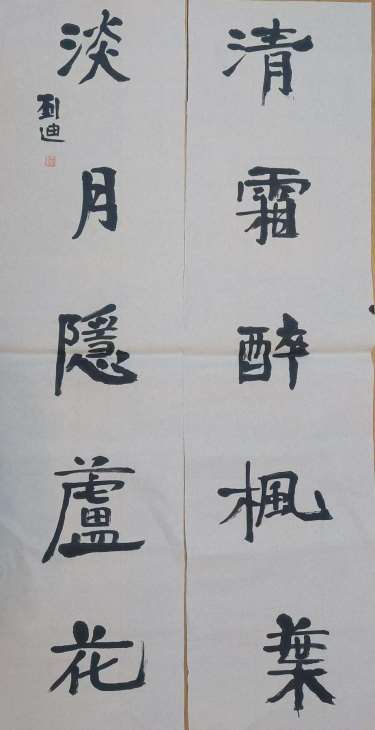 清霜醉楓葉
淡月隱蘆花
劉迪